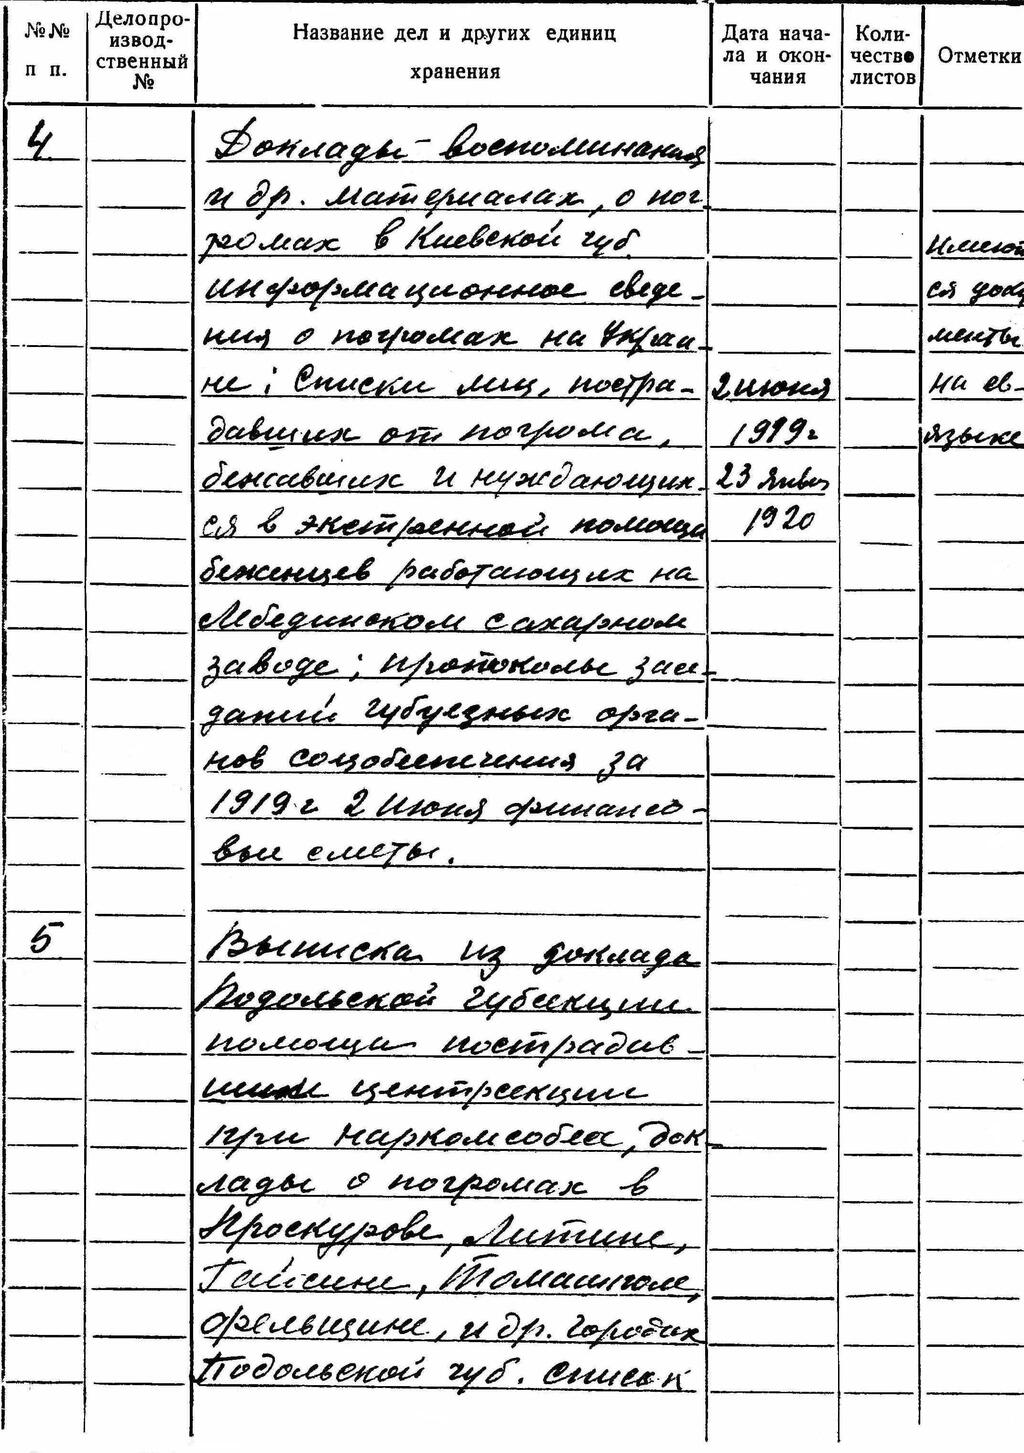 №№ п п. Делопро-извод-ственный № Название дел и других единиц хранения Дата нача-ла и окон-чания Коли-чество листов Отметки
4 Доклады воспоминания
и др. материалах, о пог-
ромах в Киевской губ. имеют
информационное сведе- ся доку
ния о погромах на Украи- менты
не; Списки лиц, постра- 2 июня на ев-
давших от погрома, 1919г языке
бежавших и нуждающих- 23 янв
ся в экстренной помощи 1920
беженцев работающих на
Лебединском сахарном
заводе; протоколы засе-
даний губуездных орга-
нов соцобеспечения за
1919 г 2 июня финансо-
вые сметы.
5 Выписка из доклада
Подольской губсекции
помощи пострадав-
шим центрсекции
при наркомсобеса, док-
лады о погромах в
Проскурове, Литине,
Гайсине, Томашполе,
Фельщине, и др. городах
Подольской губ. список